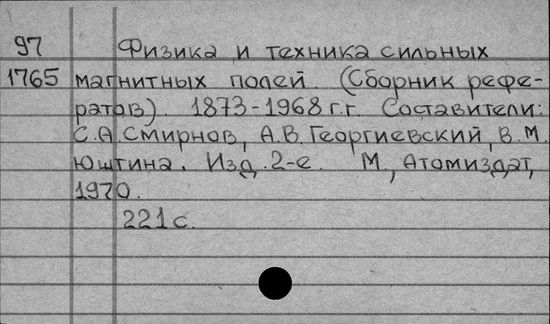 97 Физика и техника сильных
1765 магнитных полей. (Сборник рефе-
ратов). 1873-1968 г.г. Составители:
С.А. Смирнов, А.В. Георгиевский, В.М.
Юштина. Изд. 2-е. М., Атомиздат,
1970.
221 с.